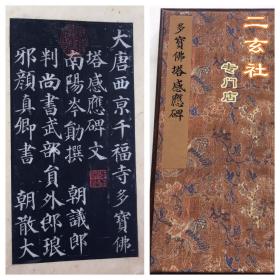 大唐西京千福寺多寶佛
塔感應碑文
南陽岑勛撰　朝議郎
判尚書武部員外郎琅
邪顏真卿書　朝散大
多寶佛塔感應碑
二玄社
专门店